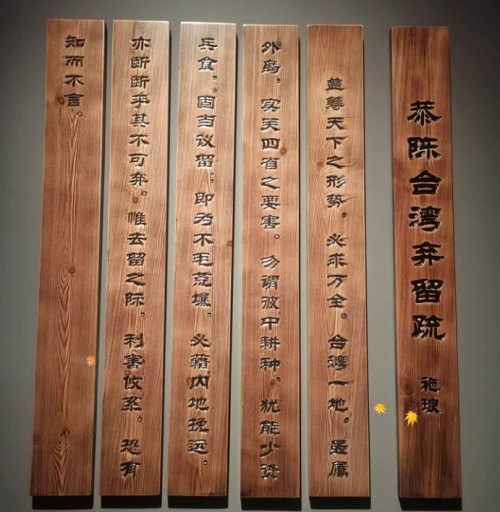 恭陈台湾弃留疏 施琅
盖筹天下之形势。必求万全。台湾一地。虽属
外岛。实关四省之要害。勿谓彼中耕种。犹能少资
兵食。固当议留。即为不毛荒壤。必藉内地挽运。
亦断断乎其不可弃。惟去留之际。利害攸系。恐有
知而不言。